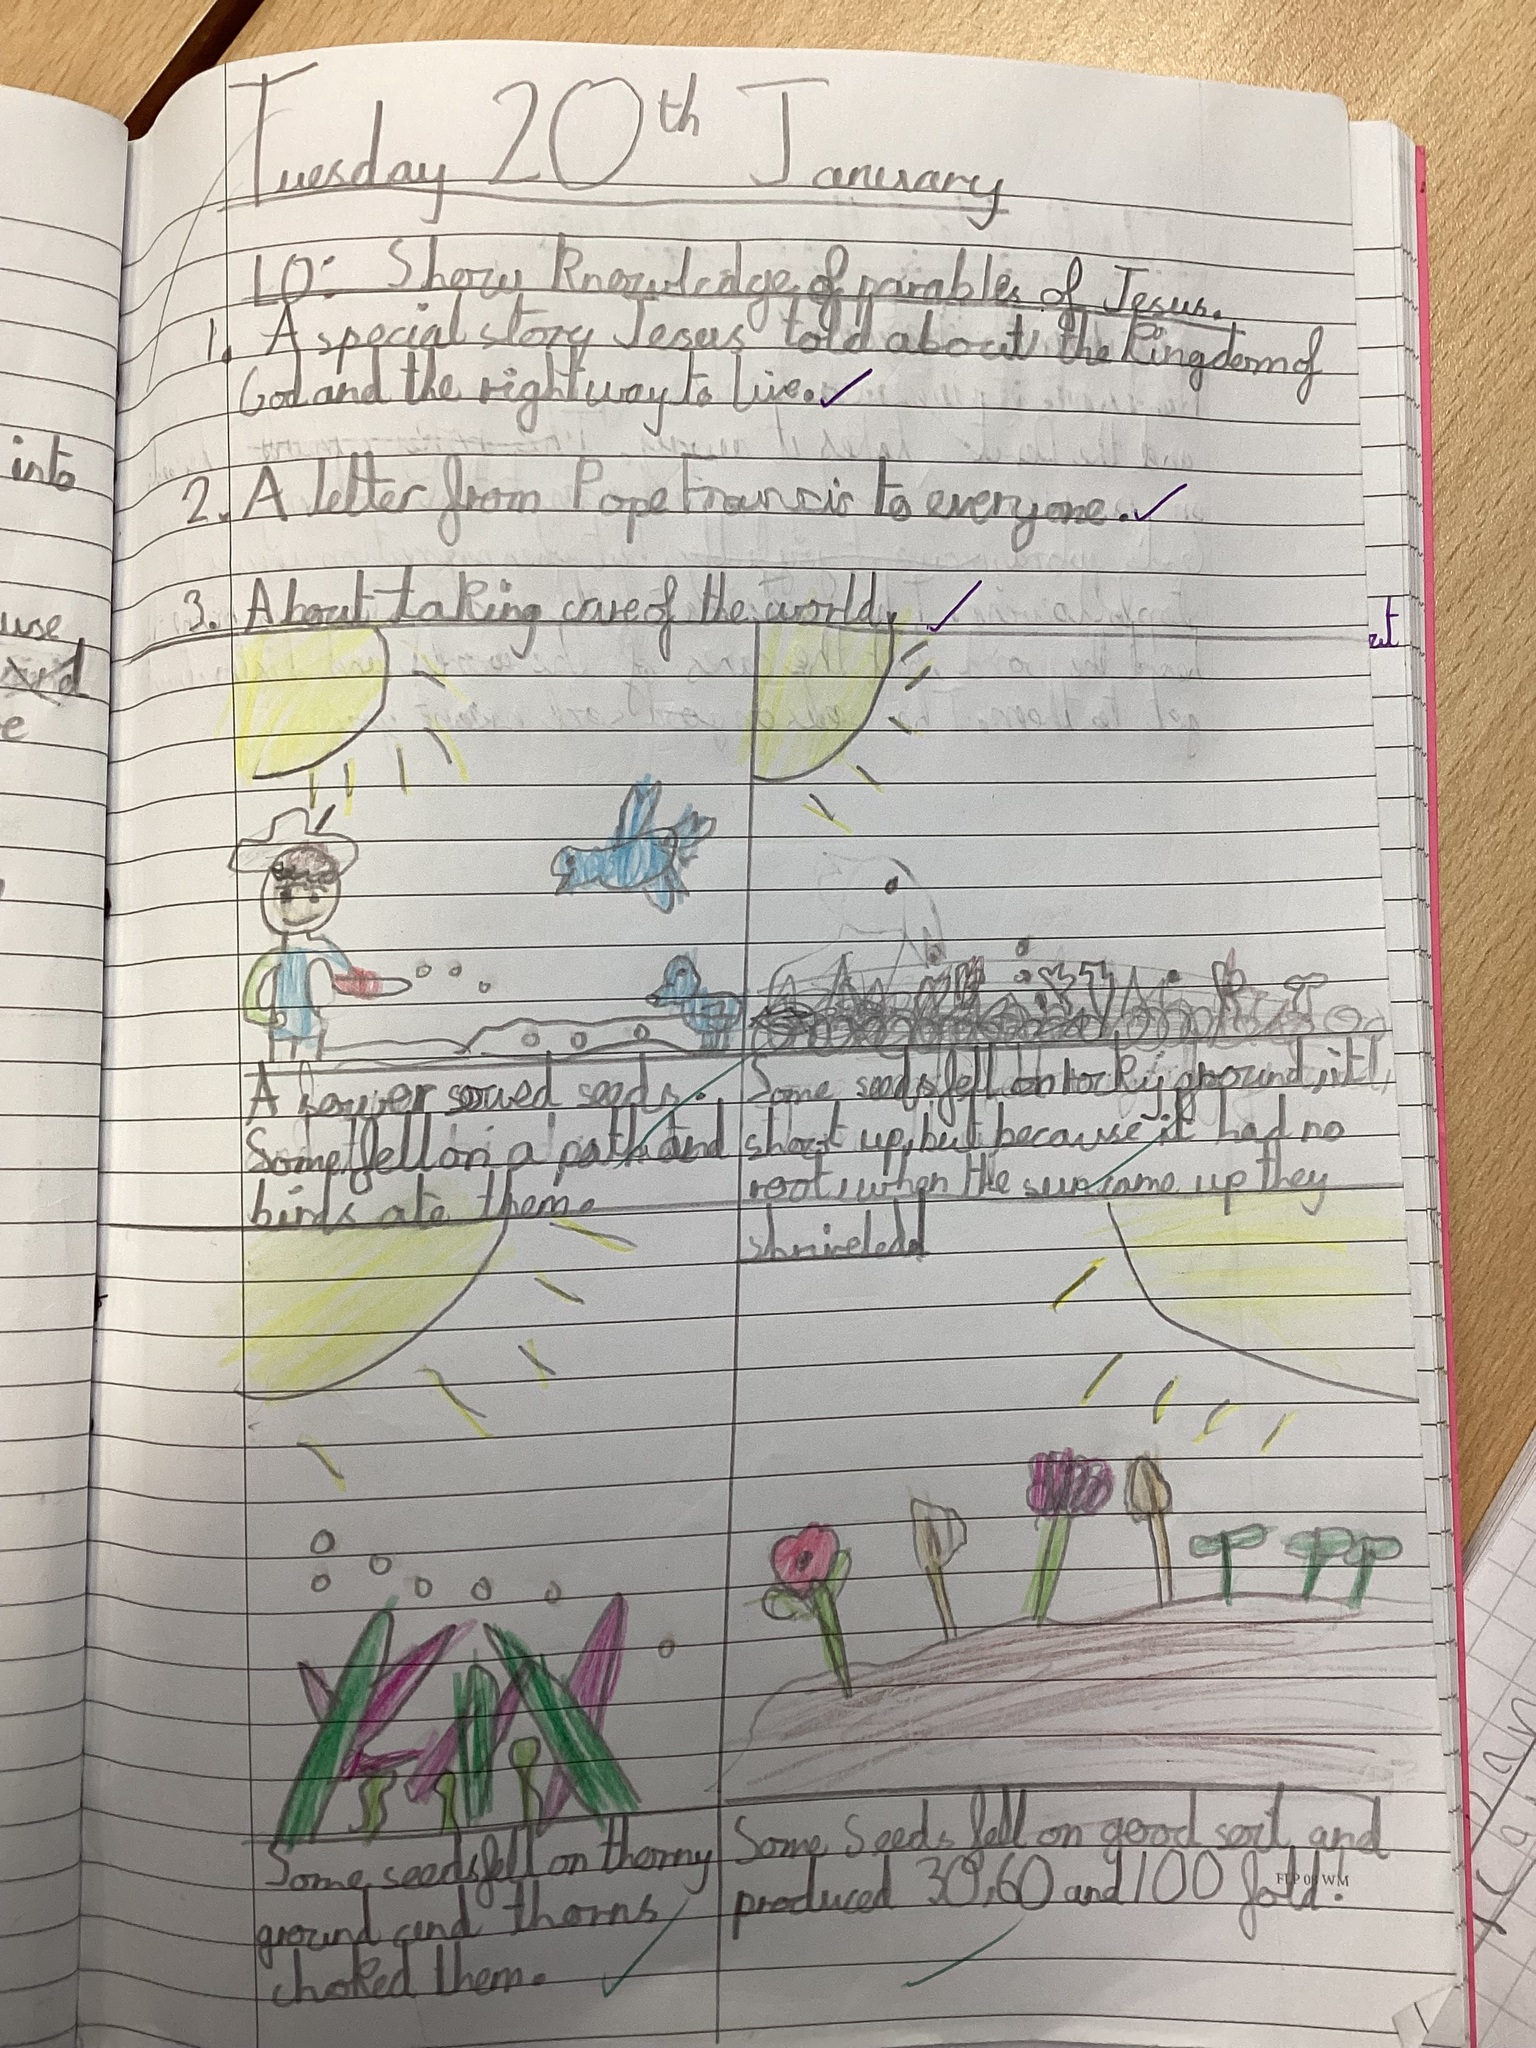 Tuesday 20th January
LO: Show Knowledge of parables of Jesus.
1. A special story Jesus told about the Kingdom of
God and the right way to live.
2. A letter from Pope Francis to everyone.
3. About taking care of the world.
A sower sowed seeds.
Some fell on a path and
birds ate them.
Some seeds fell on rocky ground, it
shoot up, but because it had no
root, when the sun came up they
shriveled
Some seeds fell on thorny
ground and thorns
choked them.
Some Seeds fell on good soil and
produced 30,60 and 100 fold!
FLP 06 WM
into
use
e